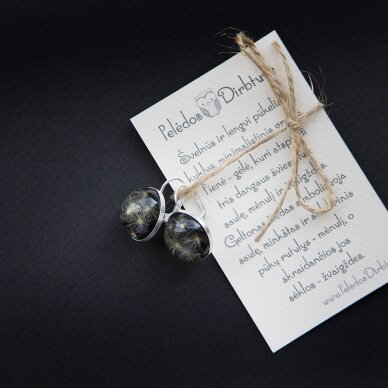 Pelėdos Dirbtuvė
Švelnūs ir lengvi pūkeliai
puklus, minimalistinis
Pienė - gėlė, kuri atspindi
tris dangaus šviesulius
saulę, mėnulį ir žvaigždes.
Geltonas žiedas simbolizuoja
saulę, minkštas ir sidabrinis
pūkų rutulys - mėnulį, o
skraidančios jos
sėklos - žvaigždes.
www.PelėdosDirbtu